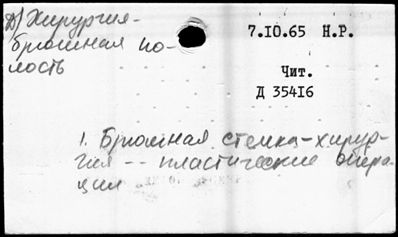 Д) Хирургия-
брюшная по-
лость
7.10.65 Н.Р.
Чит.
Д 35416
1. Брюшная стенка-хирур-
гия -- пластические опера-
ции